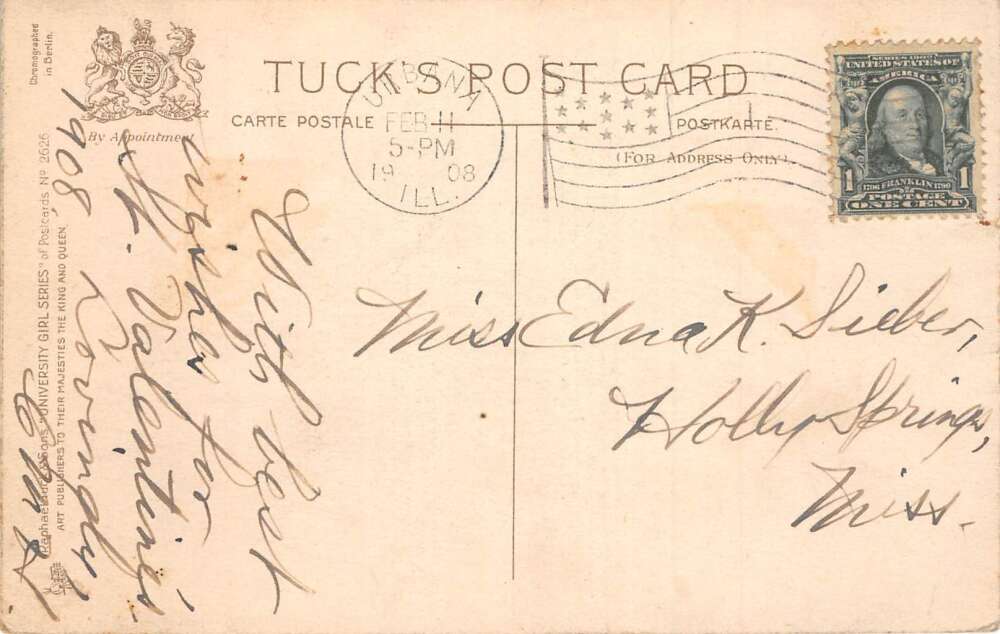 Chromographed
in Berlin.
By Appointment
TUCK'S POST CARD
CARTE POSTALE
POSTKARTE.
(FOR ADDRESS ONLY)
URBANA
FEB 11
5-PM
19 08
ILL.
SERIES 1902
UNITED STATES OF
AMERICA
1 1
1706 FRANKLIN 1790
POSTAGE
ONE CENT
Raphael Tuck & Sons' "UNIVERSITY GIRL SERIES" of Postcards No 2626
ART PUBLISHERS TO THEIR MAJESTIES THE KING AND QUEEN.
With best
wishes for
St. Valentines
1908, Lovingly
Miss Edna K. Sieber,
Holly Springs,
Miss.